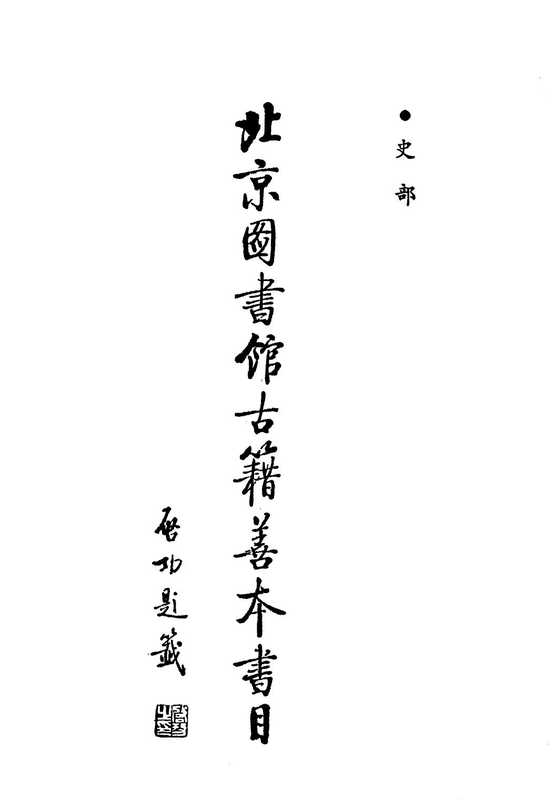 ●史部
北京圖書館古籍善本書目
啓功題籤